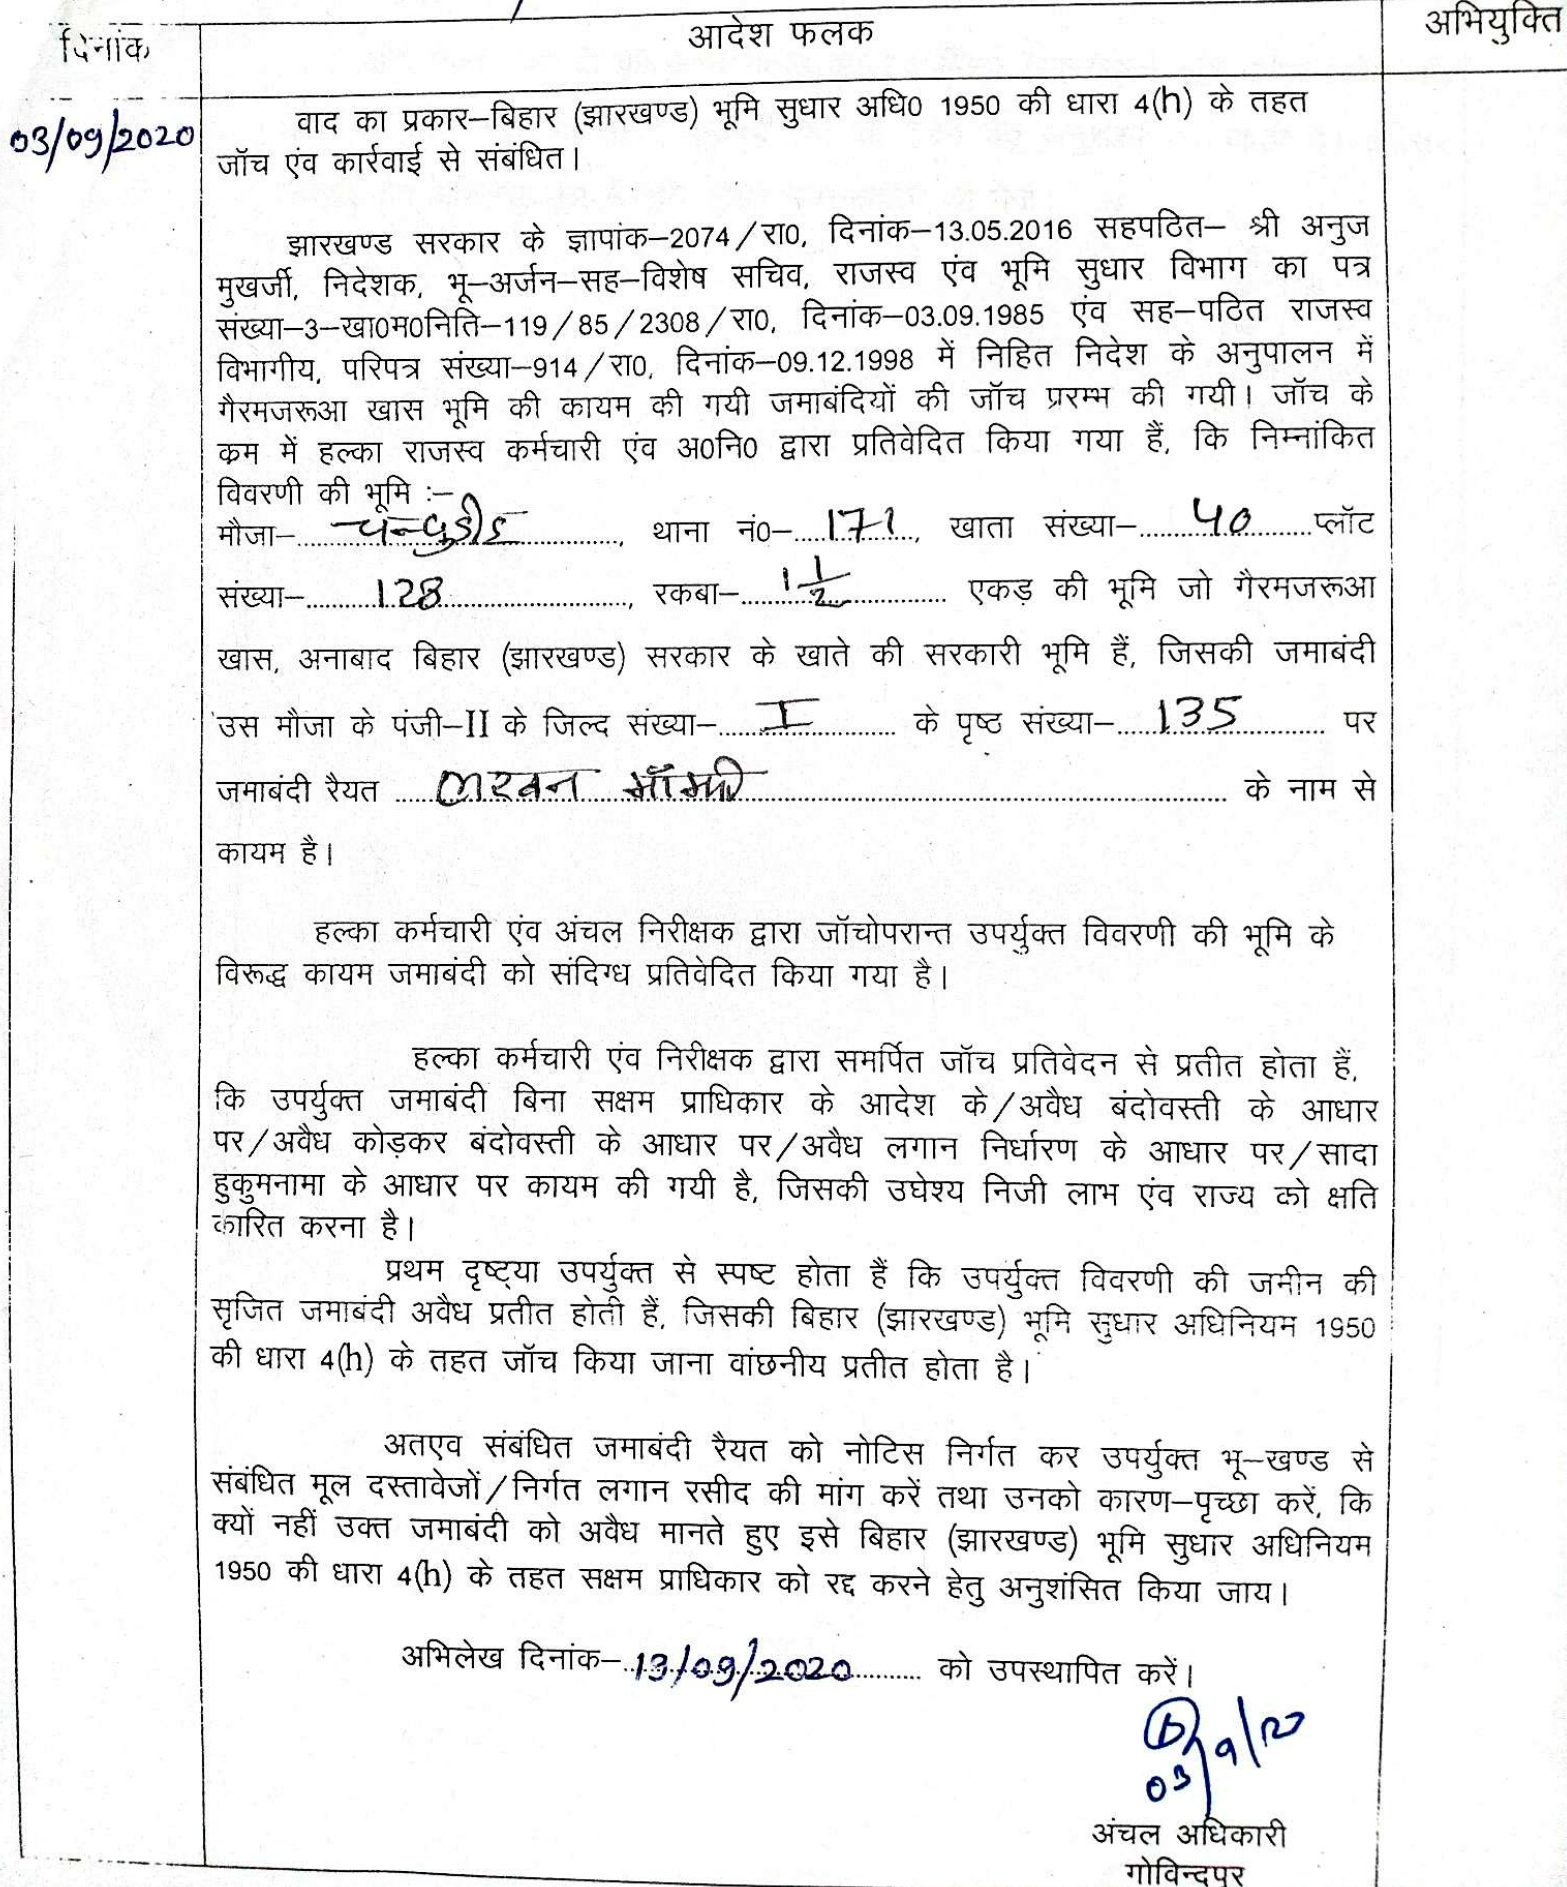 दिनांक आदेश फलक अभियुक्ति
03/09/2020
वाद का प्रकार–बिहार (झारखण्ड) भूमि सुधार अधि0 1950 की धारा 4(h) के तहत
जॉच एंव कार्रवाई से संबंधित।
झारखण्ड सरकार के ज्ञापांक–2074/रा0, दिनांक–13.05.2016 सहपठित– श्री अनुज
मुखर्जी, निदेशक, भू–अर्जन–सह–विशेष सचिव, राजस्व एंव भूमि सुधार विभाग का पत्र
संख्या–3–खा0म0निति–119/85/2308/रा0, दिनांक–03.09.1985 एंव सह–पठित राजस्व
विभागीय, परिपत्र संख्या–914/रा0, दिनांक–09.12.1998 में निहित निदेश के अनुपालन में
गैरमजरूआ खास भूमि की कायम की गयी जमाबंदियों की जॉच प्ररम्भ की गयी। जॉच के
कम में हल्का राजस्व कर्मचारी एंव अ0नि0 द्वारा प्रतिवेदित किया गया हैं, कि निम्नांकित
विवरणी की भूमि :–
मौजा–, थाना नं0–171, खाता संख्या–40 प्लॉट
संख्या–128, रकबा–1 1/2 एकड़ की भूमि जो गैरमजरूआ
खास, अनाबाद बिहार (झारखण्ड) सरकार के खाते की सरकारी भूमि हैं, जिसकी जमाबंदी
उस मौजा के पंजी–II के जिल्द संख्या–I के पृष्ठ संख्या–135 पर
जमाबंदी रैयत लखन माँझी के नाम से
कायम है।
हल्का कर्मचारी एंव अंचल निरीक्षक द्वारा जॉचोपरान्त उपर्युक्त विवरणी की भूमि के
विरूद्ध कायम जमाबंदी को संदिग्ध प्रतिवेदित किया गया है।
हल्का कर्मचारी एंव निरीक्षक द्वारा समर्पित जॉच प्रतिवेदन से प्रतीत होता हैं,
कि उपर्युक्त जमाबंदी बिना सक्षम प्राधिकार के आदेश के/अवैध बंदोवस्ती के आधार
पर/अवैध कोड़कर बंदोवस्ती के आधार पर/अवैध लगान निर्धारण के आधार पर/सादा
हुकुमनामा के आधार पर कायम की गयी है, जिसकी उघेश्य निजी लाभ एंव राज्य को क्षति
कारित करना है।
प्रथम दृष्ट्या उपर्युक्त से स्पष्ट होता हैं कि उपर्युक्त विवरणी की जमीन की
सृजित जमाबंदी अवैध प्रतीत होती हैं, जिसकी बिहार (झारखण्ड) भूमि सुधार अधिनियम 1950
की धारा 4(h) के तहत जॉच किया जाना वांछनीय प्रतीत होता है।
अतएव संबंधित जमाबंदी रैयत को नोटिस निर्गत कर उपर्युक्त भू–खण्ड से
संबंधित मूल दस्तावेजों/निर्गत लगान रसीद की मांग करें तथा उनको कारण–पृच्छा करें, कि
क्यों नहीं उक्त जमाबंदी को अवैध मानते हुए इसे बिहार (झारखण्ड) भूमि सुधार अधिनियम
1950 की धारा 4(h) के तहत सक्षम प्राधिकार को रद्द करने हेतु अनुशंसित किया जाय।
अभिलेख दिनांक–13/09/2020 को उपस्थापित करें।
03/9/20
अंचल अधिकारी
गोविन्दपुर